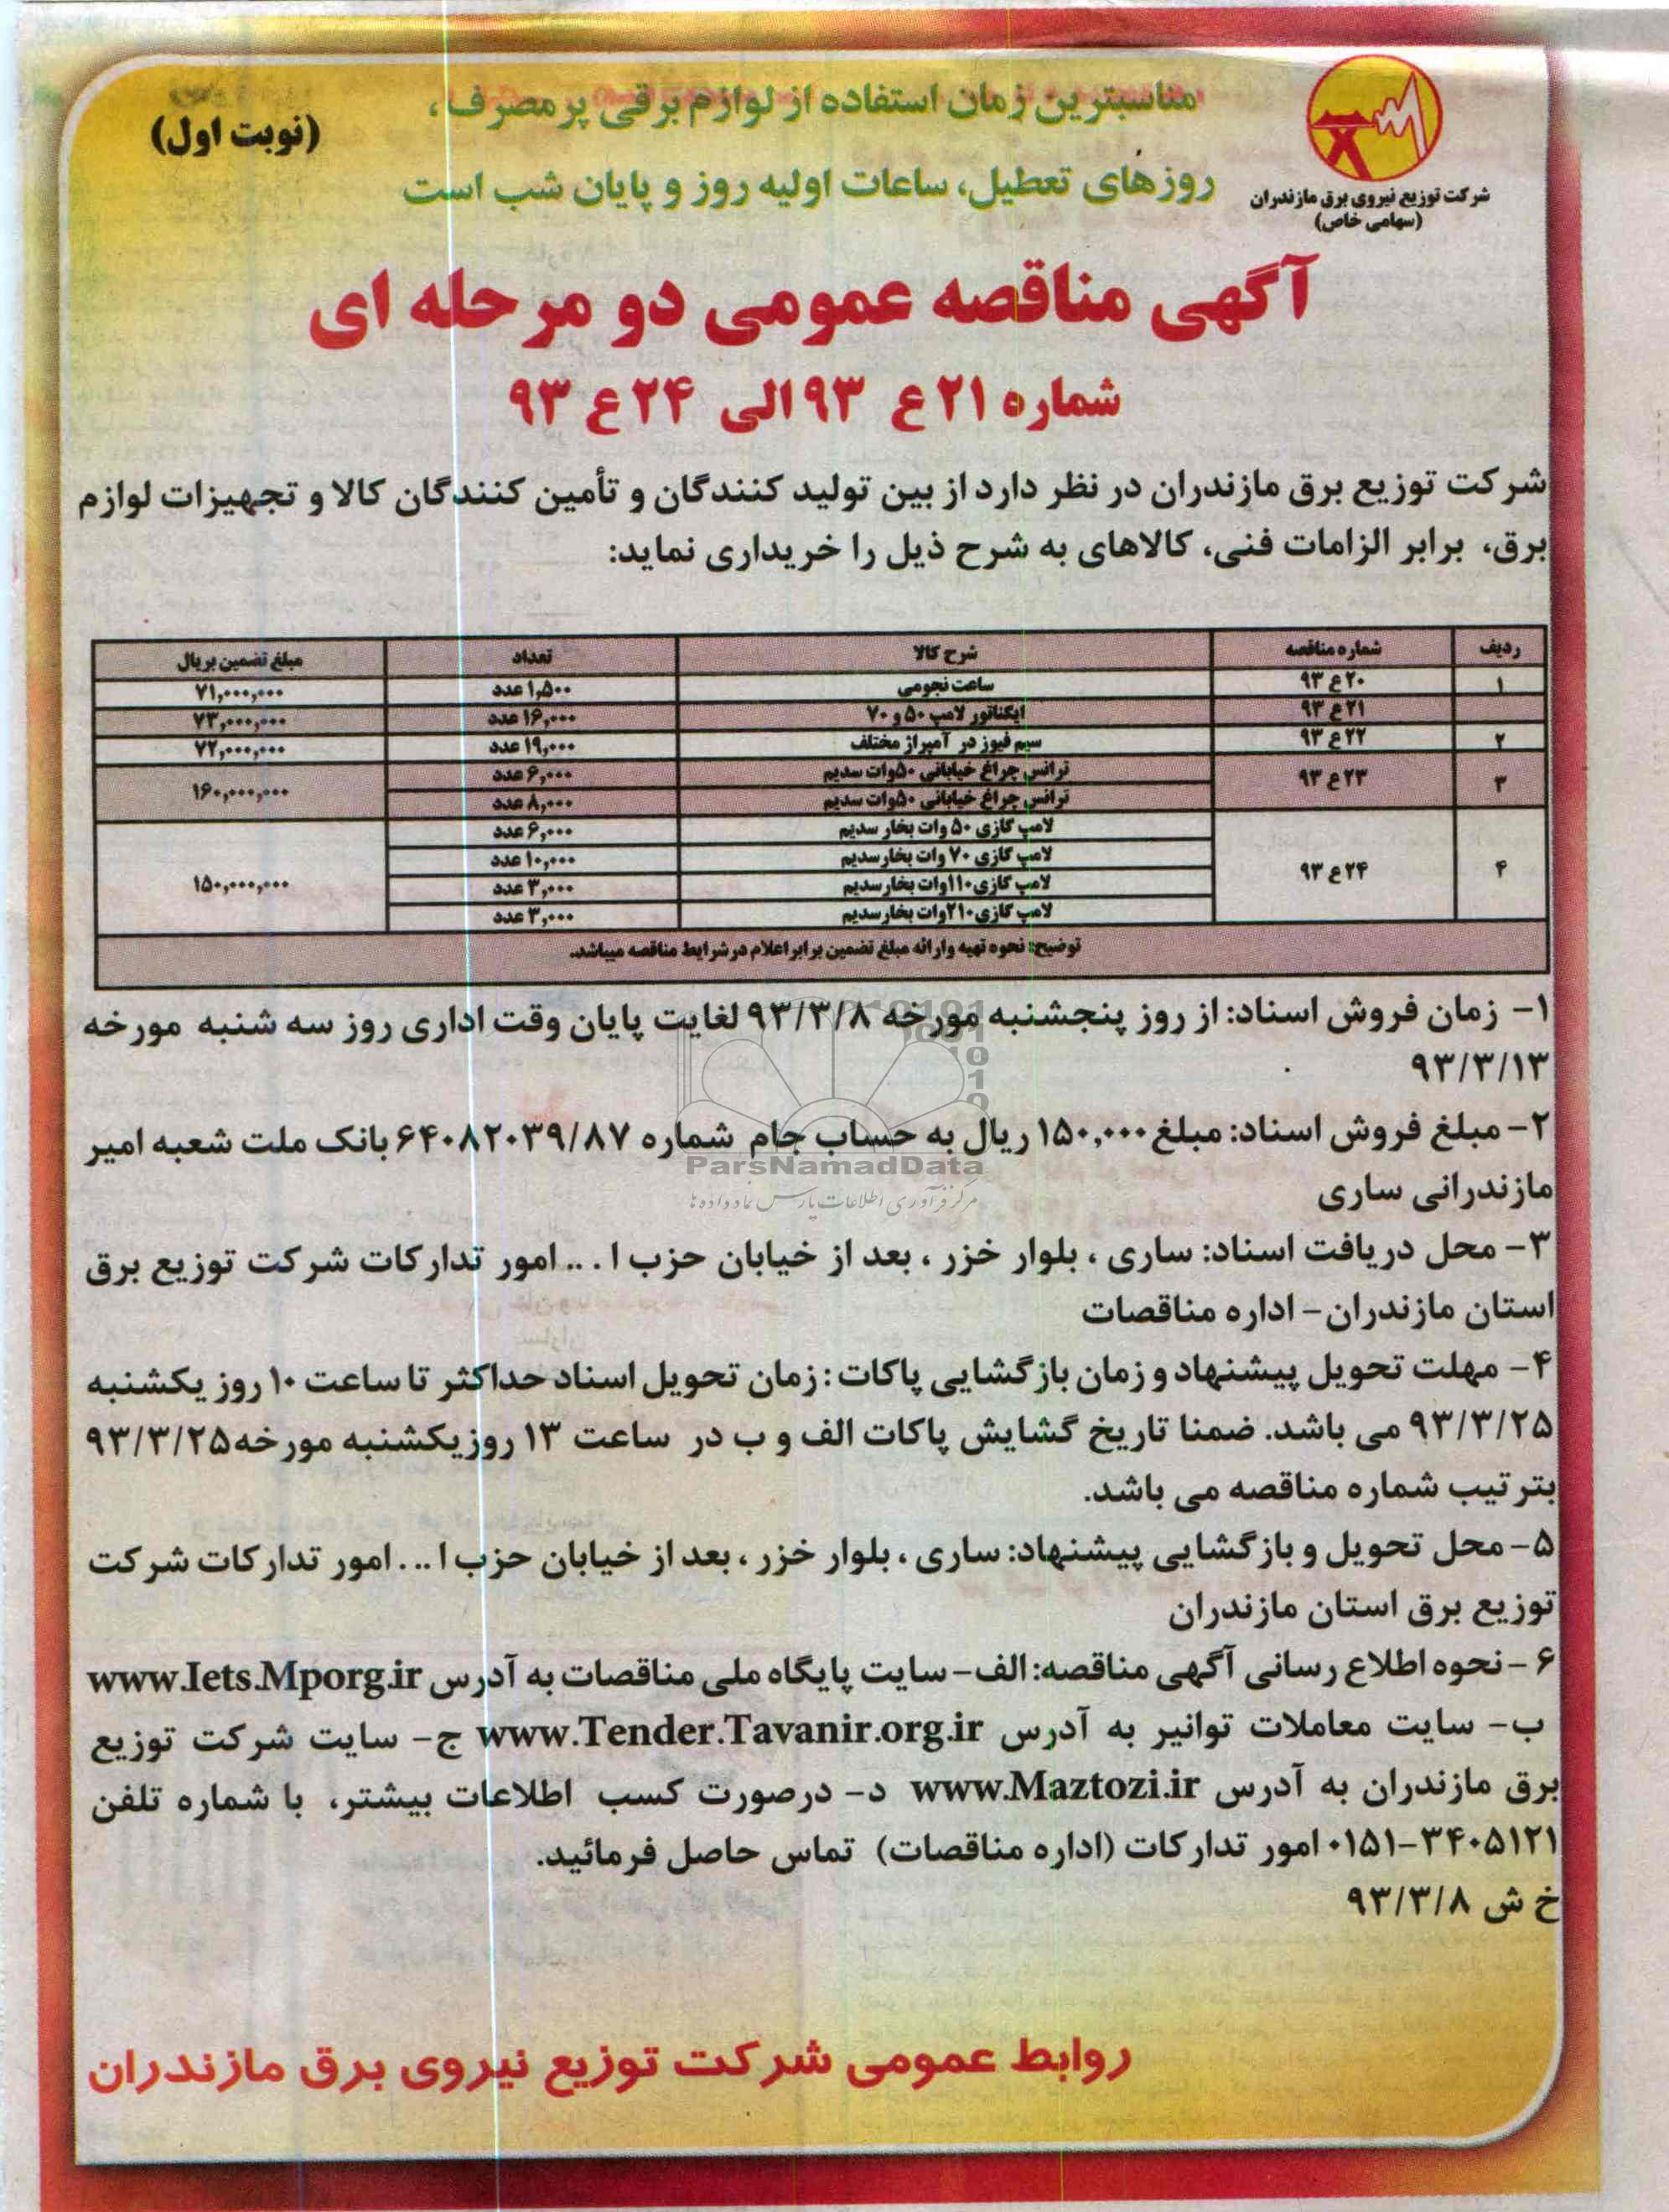 مناسبترین زمان استفاده از لوازم برقی پر مصرف،
(نوبت اول)
روزهای تعطیل، ساعات اولیه روز و پایان شب است
شرکت توزیع نیروی برق مازندران
(سهامی خاص)
آگهی مناقصه عمومی دو مرحله ای
شماره ۲۱ ع ۹۳ الی ۲۴ ع ۹۳
شرکت توزیع برق مازندران در نظر دارد از بین تولید کنندگان و تأمین کنندگان کالا و تجهیزات لوازم
برق، برابر الزامات فنی، کالاهای به شرح ذیل را خریداری نماید:
ردیف شماره مناقصه شرح کالا تعداد مبلغ تضمین بریال
۱ ۲۰ ع ۹۳ ساعت نجومی ۱,۵۰۰ عدد ۷۱,۰۰۰,۰۰۰
۲۱ ع ۹۳ ایگناتور لامپ ۵۰ و ۷۰ ۱۶,۰۰۰ عدد ۷۳,۰۰۰,۰۰۰
۲ ۲۲ ع ۹۳ سیم فیوز در آمپراژ مختلف ۱۹,۰۰۰ عدد ۷۲,۰۰۰,۰۰۰
۳ ۲۳ ع ۹۳ ترانس چراغ خیابانی ۵۰وات سدیم ۶,۰۰۰ عدد ۱۶۰,۰۰۰,۰۰۰
ترانس چراغ خیابانی ۵۰وات سدیم ۸,۰۰۰ عدد
۴ ۲۴ ع ۹۳ لامپ گازی ۵۰ وات بخار سدیم ۶,۰۰۰ عدد ۱۵۰,۰۰۰,۰۰۰
لامپ گازی ۷۰ وات بخارسدیم ۱۰,۰۰۰ عدد
لامپ گازی۱۱۰وات بخارسدیم ۳,۰۰۰ عدد
لامپ گازی۲۱۰وات بخارسدیم ۳,۰۰۰ عدد
توضیح: نحوه تهیه وارائه مبلغ تضمین برابراعلام درشرایط مناقصه میباشد.
۱- زمان فروش اسناد: از روز پنجشنبه مورخه ۹۳/۳/۸ لغایت پایان وقت اداری روز سه شنبه مورخه
۹۳/۳/۱۳
۲- مبلغ فروش اسناد: مبلغ ۱۵۰,۰۰۰ ریال به حساب جام شماره ۶۴۰۸۲۰۳۹/۸۷ بانک ملت شعبه امیر
مازندرانی ساری
ParsNamadData
مرکز فرآوری اطلاعات پارس نماد داده ها
۳- محل دریافت اسناد: ساری ، بلوار خزر ، بعد از خیابان حزب ا ... امور تدارکات شرکت توزیع برق
استان مازندران- اداره مناقصات
۴- مهلت تحویل پیشنهاد و زمان بازگشایی پاکات : زمان تحویل اسناد حداکثر تا ساعت ۱۰ روز یکشنبه
۹۳/۳/۲۵ می باشد. ضمنا تاریخ گشایش پاکات الف و ب در ساعت ۱۳ روزیکشنبه مورخه ۹۳/۳/۲۵
بترتیب شماره مناقصه می باشد.
۵- محل تحویل و بازگشایی پیشنهاد: ساری ، بلوار خزر ، بعد از خیابان حزب ا ... امور تدارکات شرکت
توزیع برق استان مازندران
۶- نحوه اطلاع رسانی آگهی مناقصه: الف- سایت پایگاه ملی مناقصات به آدرس www.Iets.Mporg.ir
ب- سایت معاملات توانیر به آدرس www.Tender.Tavanir.org.ir ج- سایت شرکت توزیع
برق مازندران به آدرس www.Maztozi.ir د- درصورت کسب اطلاعات بیشتر، با شماره تلفن
۰۱۵۱-۳۴۰۵۱۲۱ امور تدارکات (اداره مناقصات) تماس حاصل فرمائید.
خ ش ۹۳/۳/۸
روابط عمومی شرکت توزیع نیروی برق مازندران